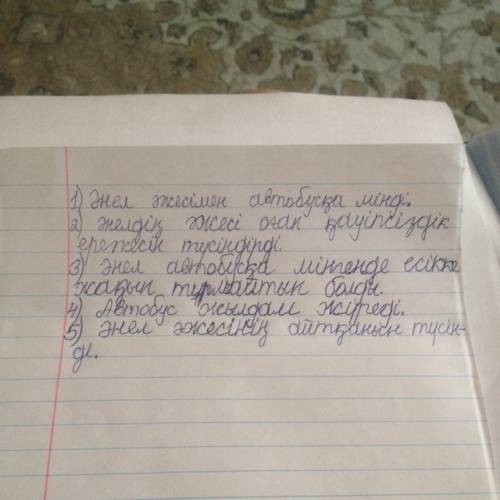 1) Әнел әжесімен автобусқа мінді.
2) Әнелдің әжесі оған қауіпсіздік
ережесін түсіндірді.
3) Әнел автобусқа мінгенде есікке
жақын тұрмайтын болды
4) Автобус жылдам жүреді.
5) Әнел әжесінің айтқанын түсін-
ді.